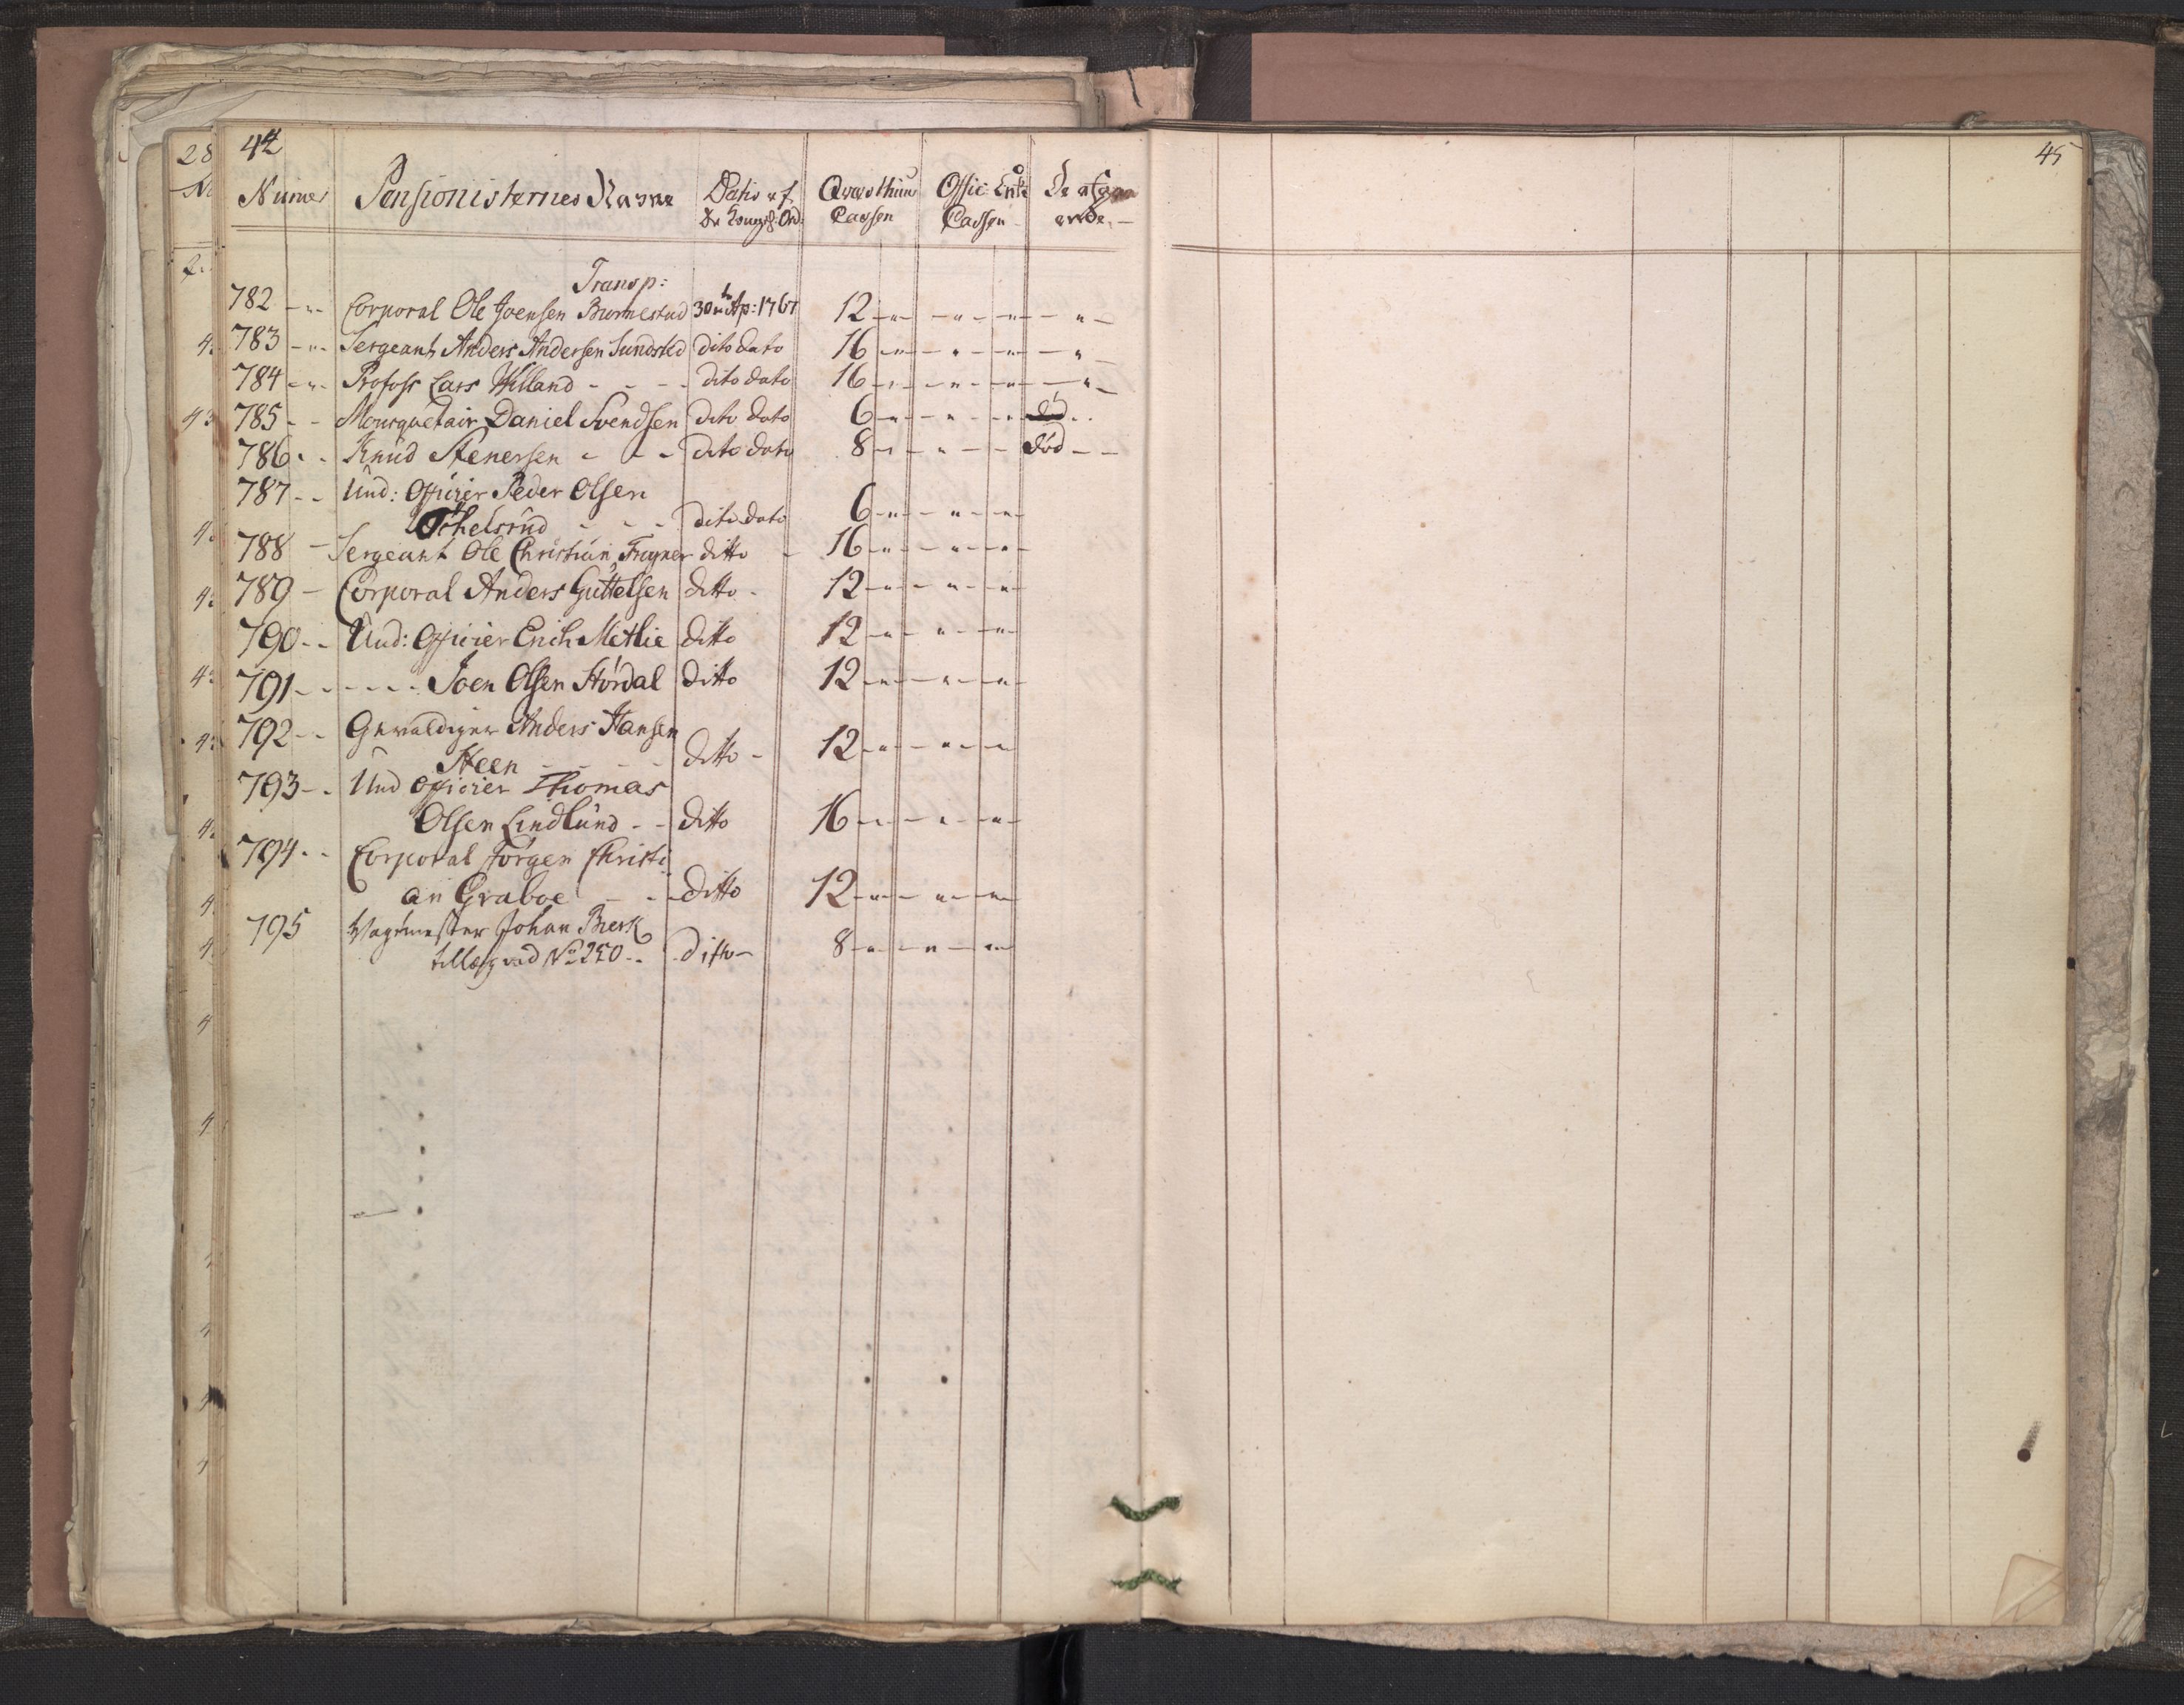 44
Numer Pensionisternes Navne Datis af Qvæsthuus Offic: Enke De afgaa
de Kongel: Ord: Cassen Cassen ende. —
Transp:
782 - „ - Corporal Ole Joensen Burmestad 30te Ap: 1767 12 - „ - - „ - - „ - - „ -
783 - „ - Sergeant Anders Andersen Sundsted dito dato 16 - „ - - „ - - „ - - „ -
784 - „ - Profoss Lars Willand - - - dito dato 16 - „ - - „ - - „ - - „ -
785 - - Mousquetair Daniel Svendsen dito dato 6 - „ - - „ - - „ död - -
786 - - Knud Stenersen - - - dito dato 8 - „ - - „ - - död - -
787 - - Und: Officier Peder Olsen
dito dato 6 - „ - - „ - - „ -
788 - Sergeant Ole Christian Frugner ditto - 16 - „ - - „ - - „ -
789 - Corporal Anders Guttelsen ditto - 12 - „ - - „ - - „ -
790 - - Und: Officier Erich Metlie ditto 12 - „ - - „ - - „ -
791 - - - - - - Joen Olsen Hördal ditto 12 - „ - - „ - - „ -
792 - - Gewaldiger Anders Hansen
Steen - - - - ditto - 12 - „ - - „ - - „ -
793 - - Und Officier Thomas
Olsen Lindlund - - ditto 16 - „ - - „ - - „ -
794 - - Corporal Jörgen Christi
an Graboe - - ditto 12 - „ - - „ - - „ -
795 Vagtmester Johan Bierk
tillæg ved No 250 - - ditto - 8 - „ - - „ - - „ -
45
28